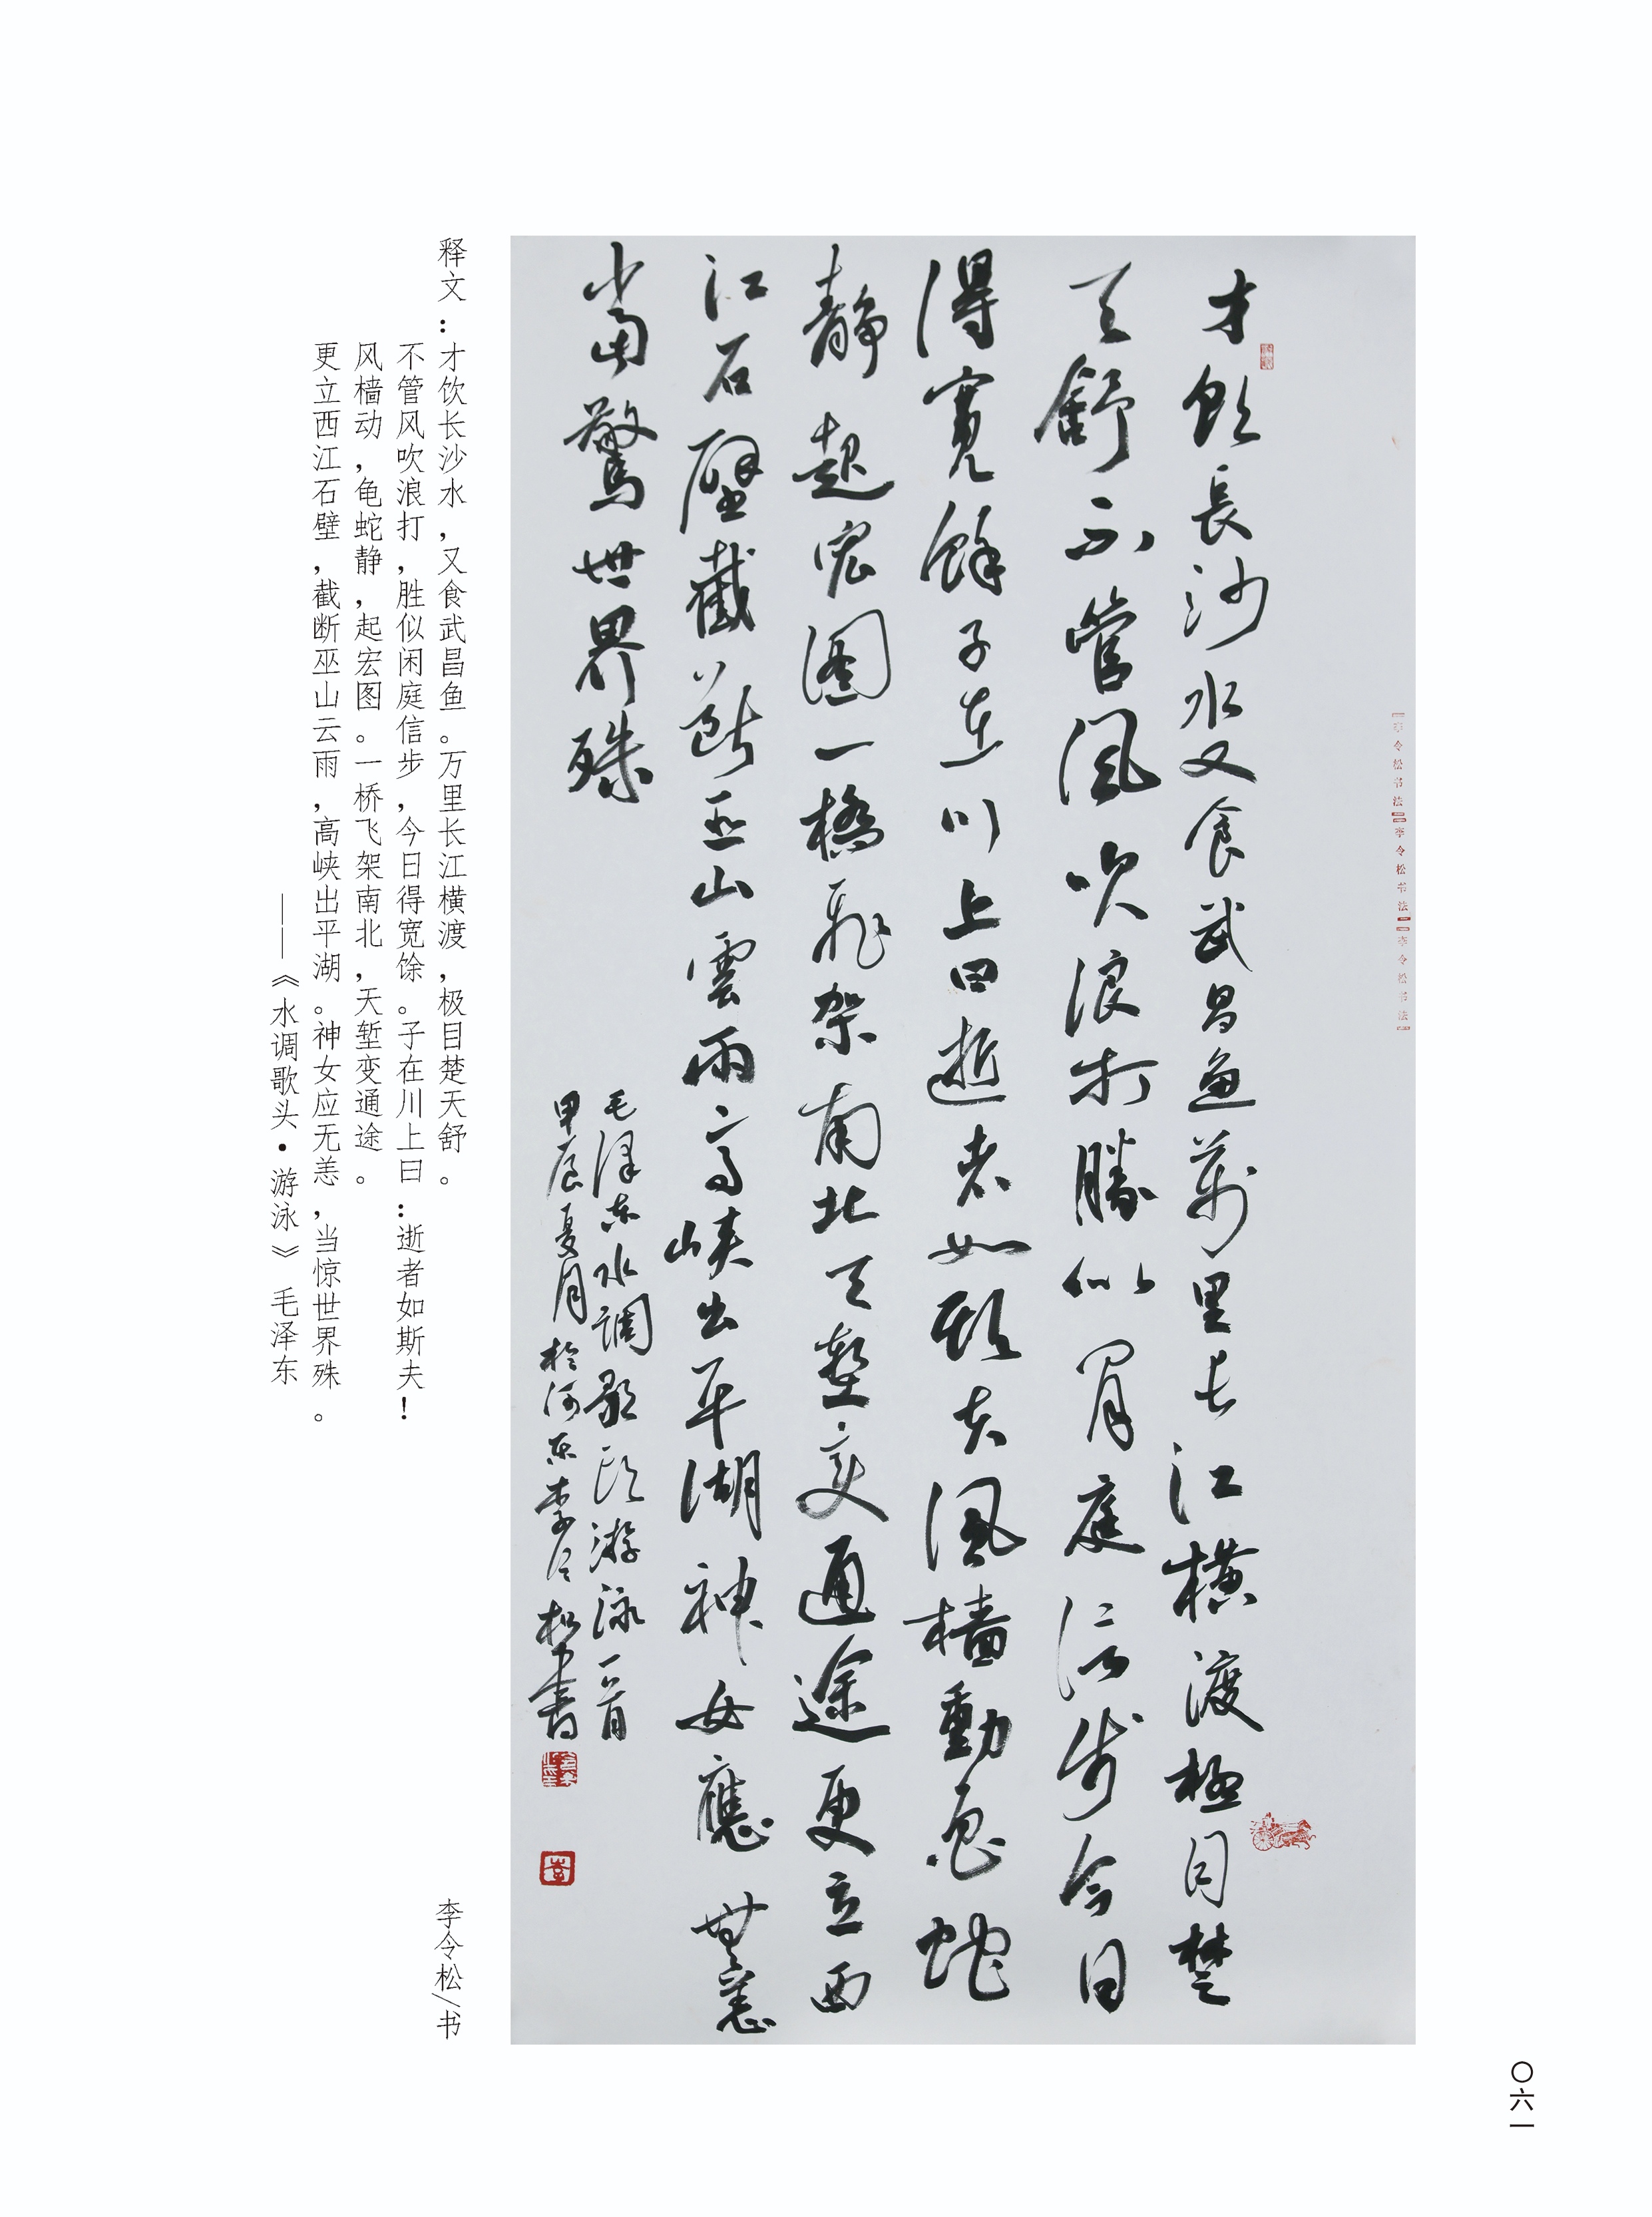 才飲長沙水又食武昌魚萬里長江橫渡極目楚
天舒不管風吹浪打勝似閒庭信步今日
得寬餘子在川上曰逝者如斯夫風檣動龜蛇
靜起宏圖一橋飛架南北天塹變通途更立西
江石壁截斷巫山雲雨高峽出平湖神女應無恙
當驚世界殊
毛澤東水調歌頭游泳一首
甲辰夏月於河东李令松書
李令松书法
李令松书法
李令松书法
释文:才饮长沙水,又食武昌鱼。万里长江横渡,极目楚天舒。
不管风吹浪打,胜似闲庭信步,今日得宽馀。子在川上曰:逝者如斯夫!
风樯动,龟蛇静,起宏图。一桥飞架南北,天堑变通途。
更立西江石壁,截断巫山云雨,高峡出平湖。神女应无恙,当惊世界殊。
——《水调歌头·游泳》 毛泽东
李令松/书
〇六一